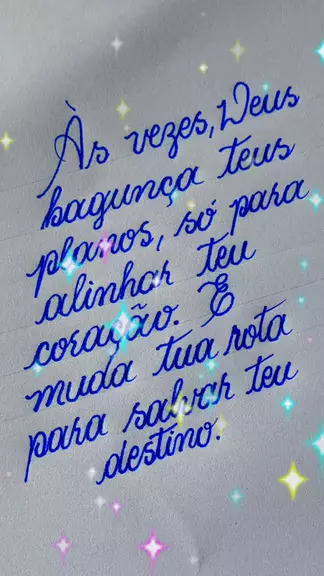 Às vezes, Deus
bagunça teus
planos, só para
alinhar teu
coração. E
muda tua rota
para salvar teu
destino.